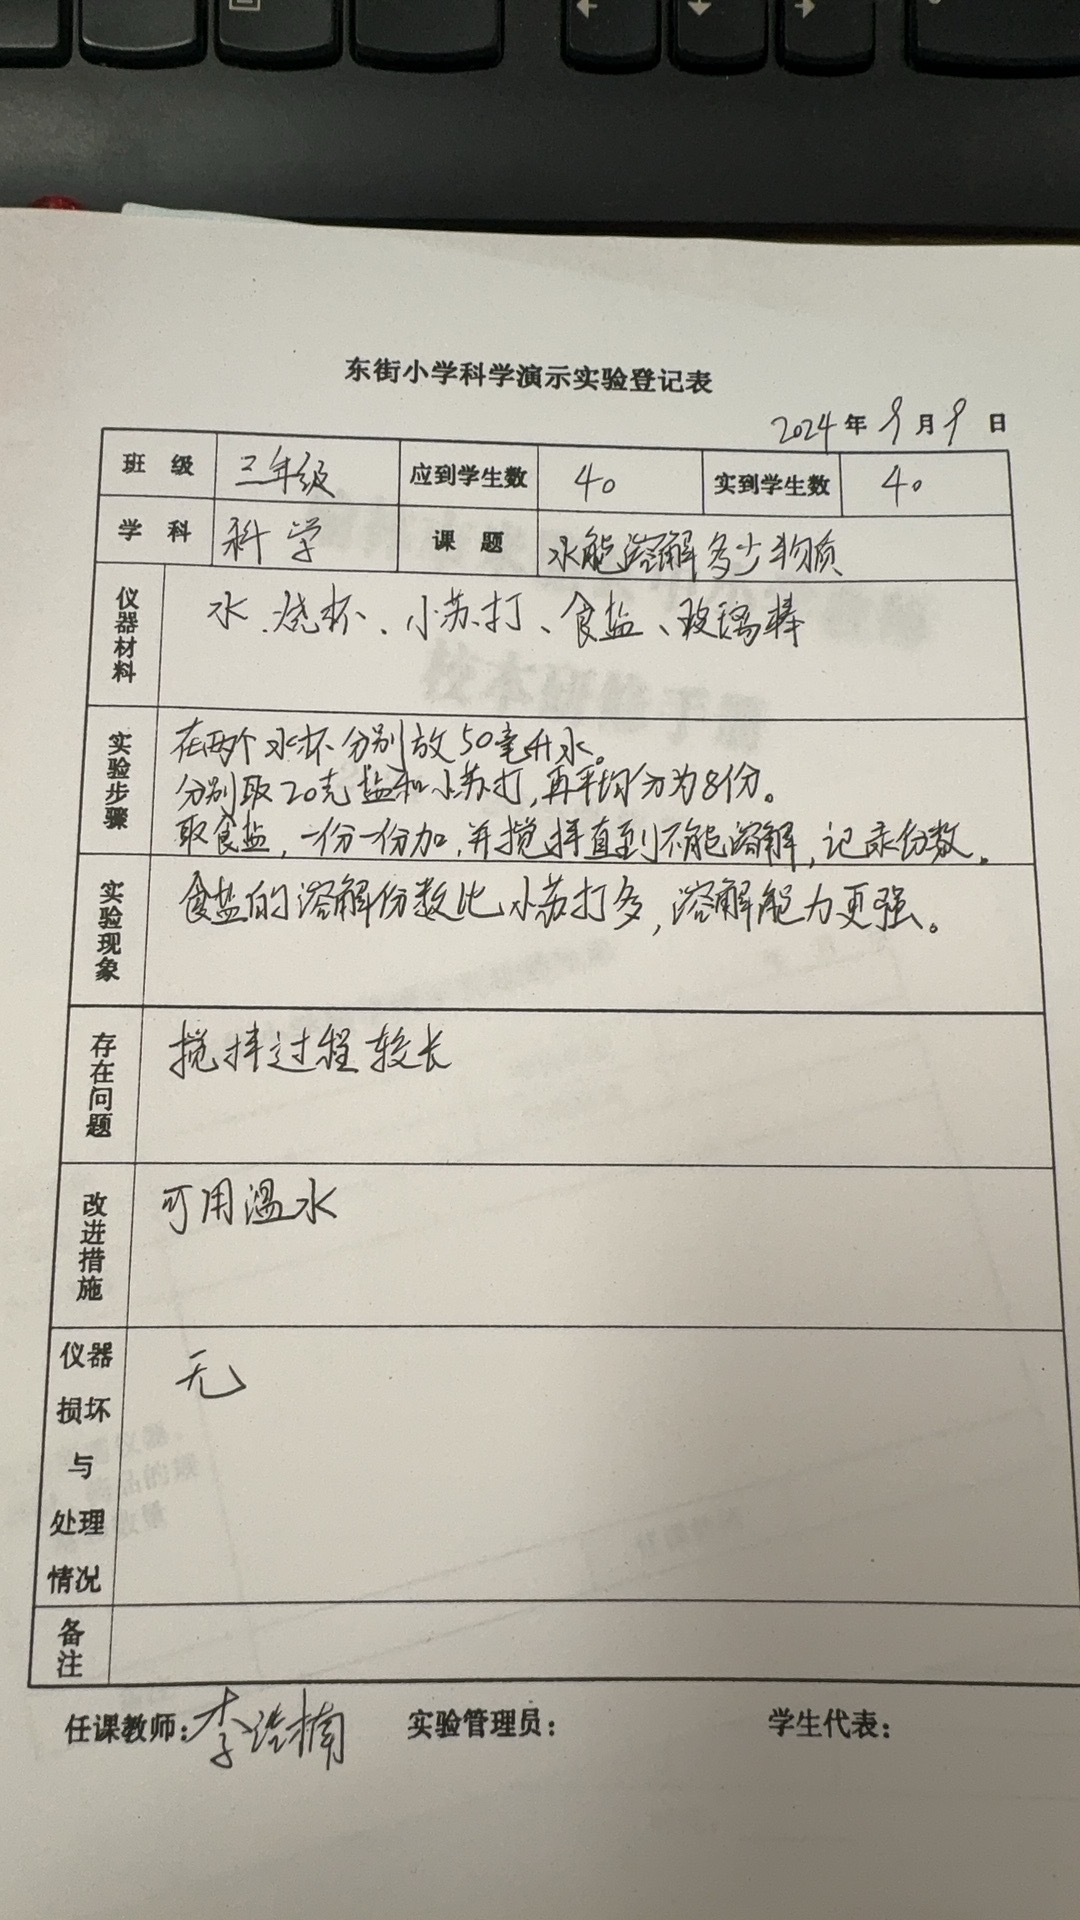 东街小学科学演示实验登记表
2024年9月9日
班级 三年级 应到学生数 40 实到学生数 40
学科 科学 课题 水能溶解多少物质
仪器材料 水、烧杯、小苏打、食盐、玻璃棒
实验步骤 在两个水杯分别放50毫升水。
分别取20克盐和小苏打,再平均分为8份。
取食盐,一份一份加,并搅拌直到不能溶解,记录份数。
实验现象 食盐的溶解份数比小苏打多,溶解能力更强。
存在问题 搅拌过程较长
改进措施 可用温水
仪器损坏与处理情况 无
备注
任课教师:李浩楠 实验管理员: 学生代表: